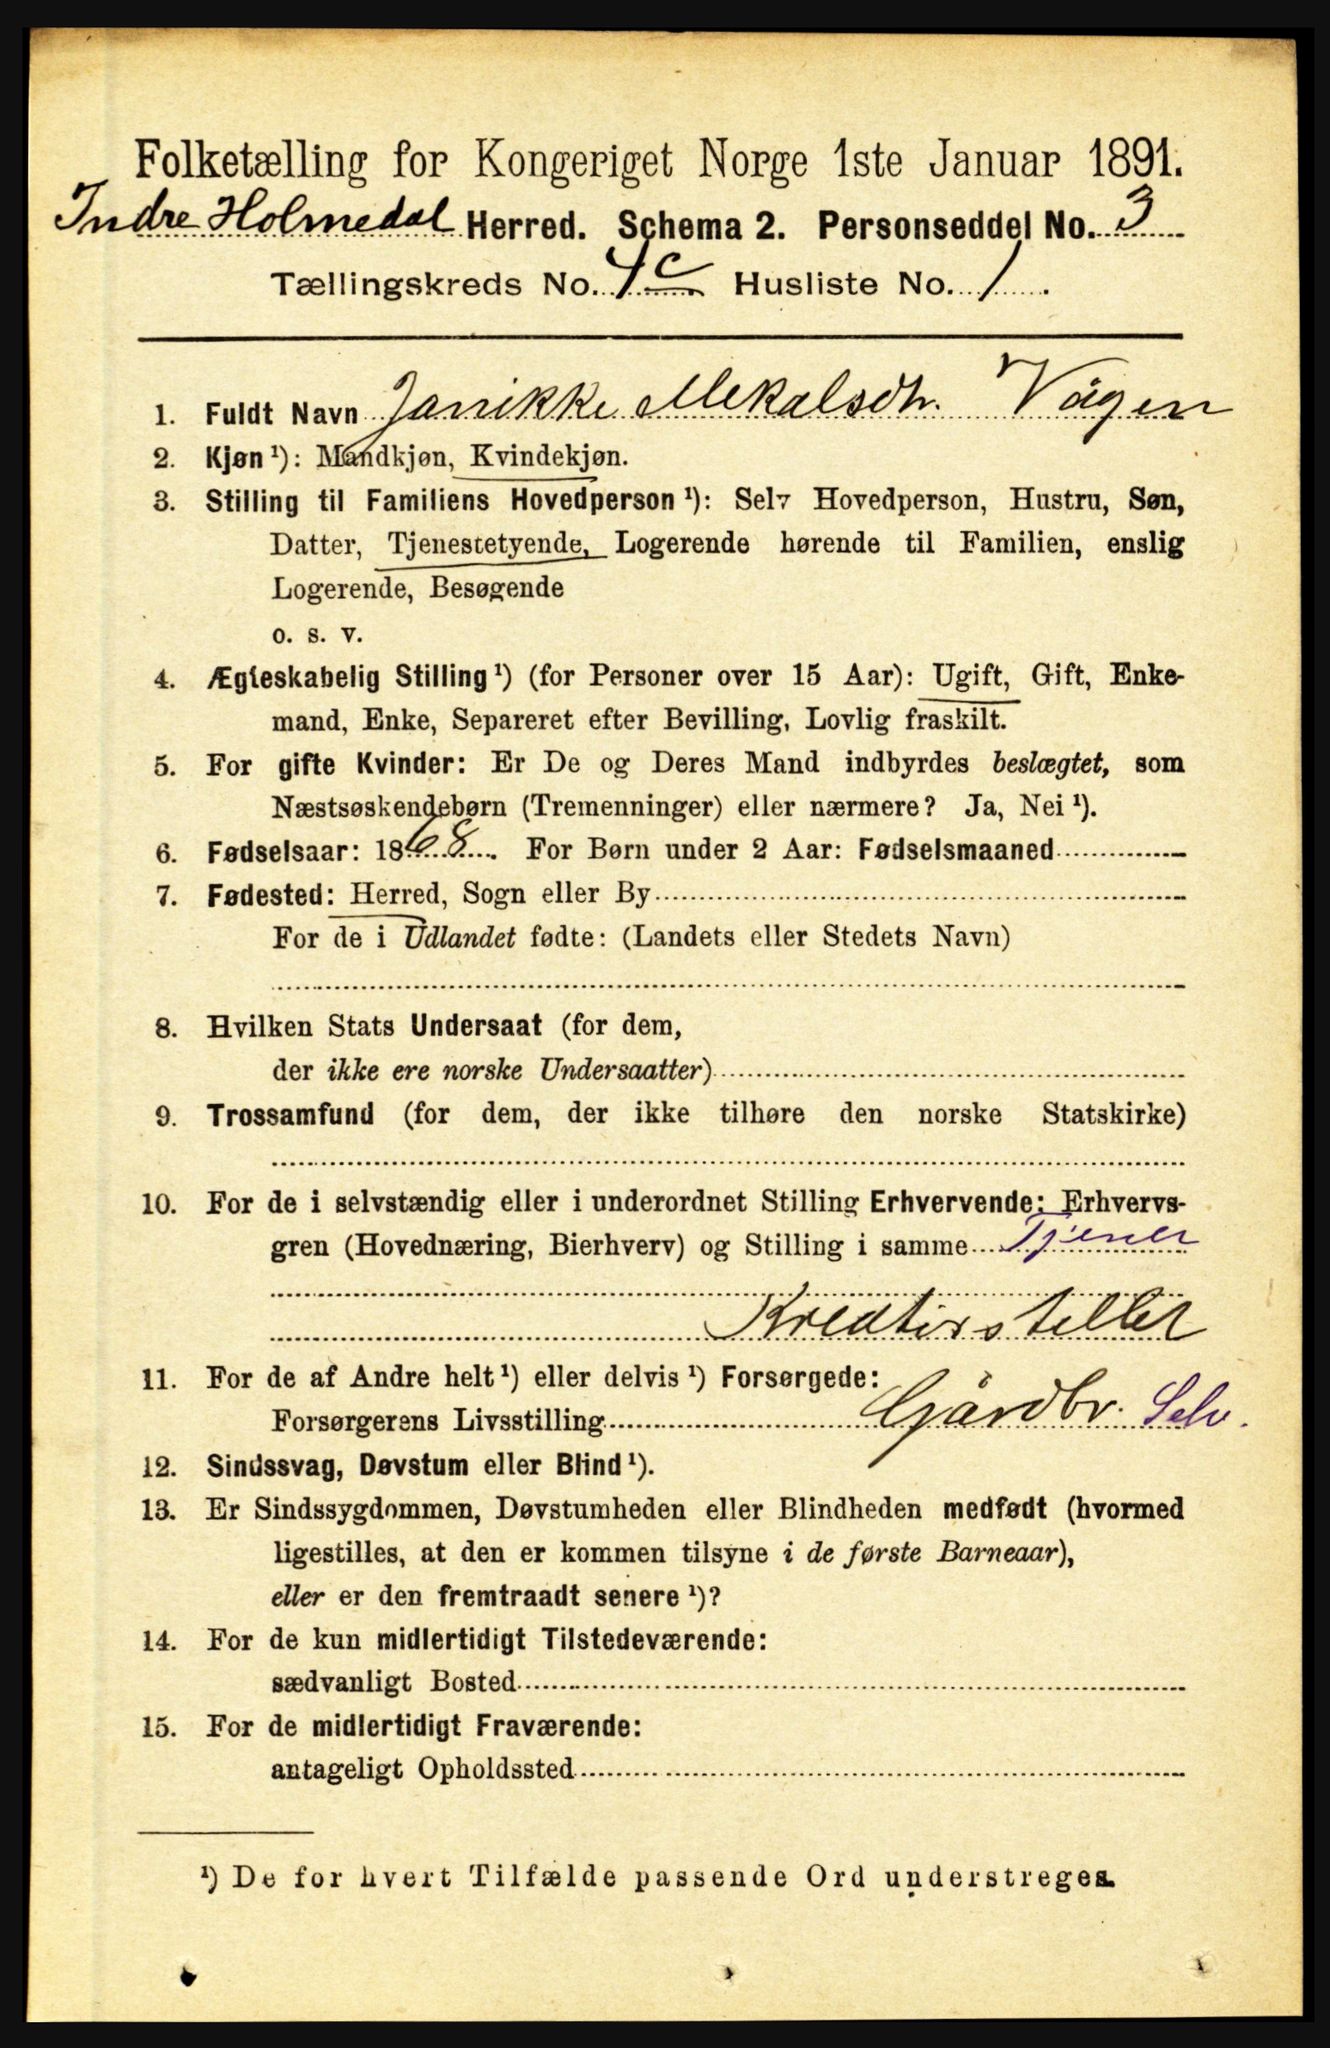 Folketælling for Kongeriget Norge 1ste Januar 1891.
Indre Holmedal Herred. Schema 2. Personseddel No. 3
Tællingskreds No. 4c Husliste No. 1.
1. Fuldt Navn Janikke Mekalsdtr. Vågen
2. Kjøn¹): Mandkjøn, Kvindekjøn.
3. Stilling til Familiens Hovedperson¹): Selv Hovedperson, Hustru, Søn,
Datter, Tjenestetyende, Logerende hørende til Familien, enslig
Logerende, Besøgende
o. s. v.
4. Ægteskabelig Stilling¹) (for Personer over 15 Aar): Ugift, Gift, Enke-
mand, Enke, Separeret efter Bevilling, Lovlig fraskilt.
5. For gifte Kvinder: Er De og Deres Mand indbyrdes beslægtet, som
Næstsøskendebørn (Tremenninger) eller nærmere? Ja, Nei¹).
6. Fødselsaar: 1868. For Børn under 2 Aar: Fødselsmaaned
7. Fødested: Herred, Sogn eller By
For de i Udlandet fødte: (Landets eller Stedets Navn)
8. Hvilken Stats Undersaat (for dem,
der ikke ere norske Undersaatter)
9. Trossamfund (for dem, der ikke tilhøre den norske Statskirke)
10. For de i selvstændig eller i underordnet Stilling Erhvervende: Erhvervs-
gren (Hovednæring, Bierhverv) og Stilling i samme Tjener
Kreatursteller
11. For de af Andre helt¹) eller delvis¹) Forsørgede:
Forsørgerens Livsstilling Gårdbr. Selv.
12. Sindssvag, Døvstum eller Blind¹).
13. Er Sindssygdommen, Døvstumheden eller Blindheden medfødt (hvormed
ligestilles, at den er kommen tilsyne i de første Barneaar),
eller er den fremtraadt senere¹)?
14. For de kun midlertidigt Tilstedeværende:
sædvanligt Bosted
15. For de midlertidigt Fraværende:
antageligt Opholdssted
¹) De for hvert Tilfælde passende Ord understreges.